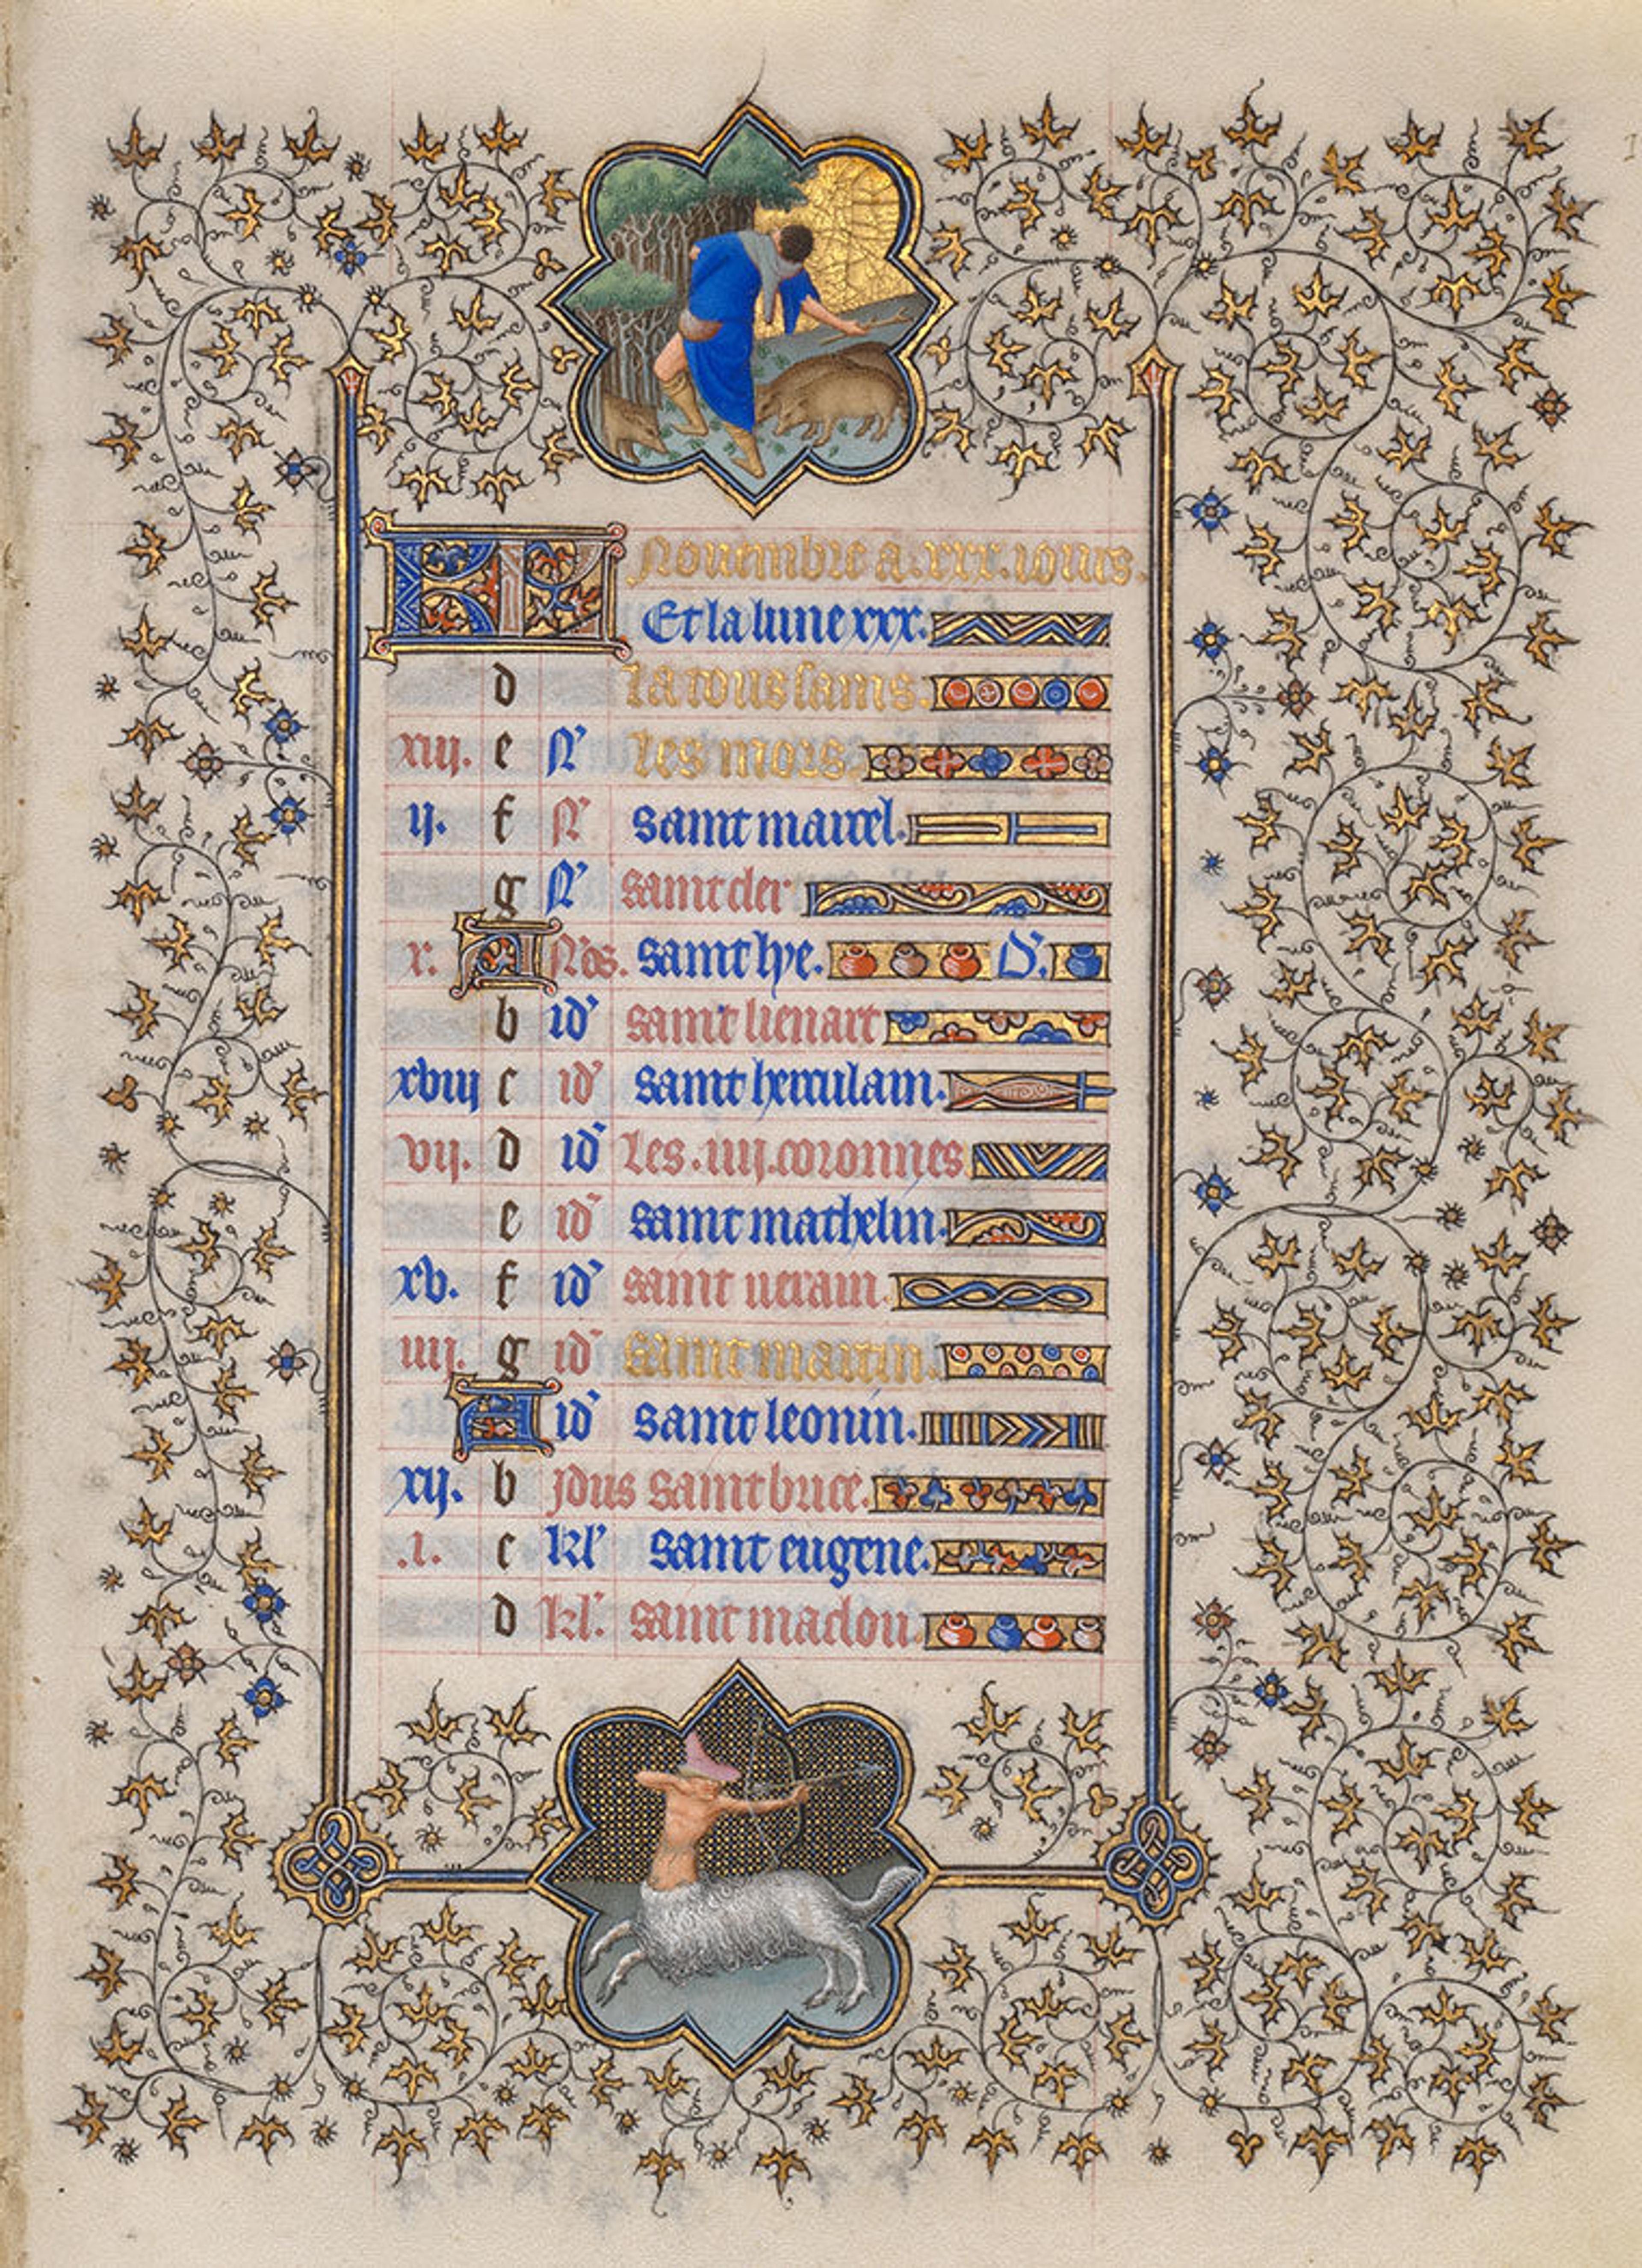 KL Nouembre a .xxx. iours.
Et la lune xxx.
d La toussains.
xiij. e N' Les mors.
ij. f N' saint marcel.
g N' saint cler
x. A N'os. saint lye. D'.
b id' saint lienart
xviij c id' saint herculain.
vij. d id' Les .iiij. coronnes
e id' saint mathelin.
xv. f id' saint uerain.
iiij. g id' saint martin.
A id' saint leonin.
xij. b Jdus saint brice.
.i. c kl' saint eugene.
d kl'. saint maclou.